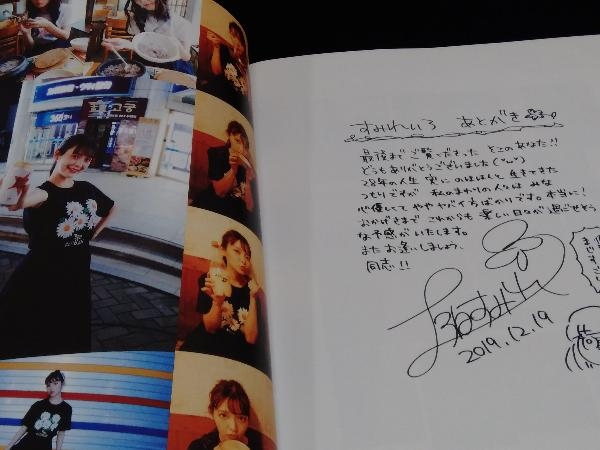 すみれいろ あとがき
最後までご覧下さった そこのあなた!!
どうもありがとうございました(˘ω˘)
28年の人生 実にのほほんと 生きてきた
つもりですが 私のまわりの人々は みな
心優しくて ややヤバイ方ばかりです。本当に!
おかげさまで これからも 楽しい日々が過ごせそう
な予感がいたします。
またお逢いしましょう、
同志!!
2019.12.19